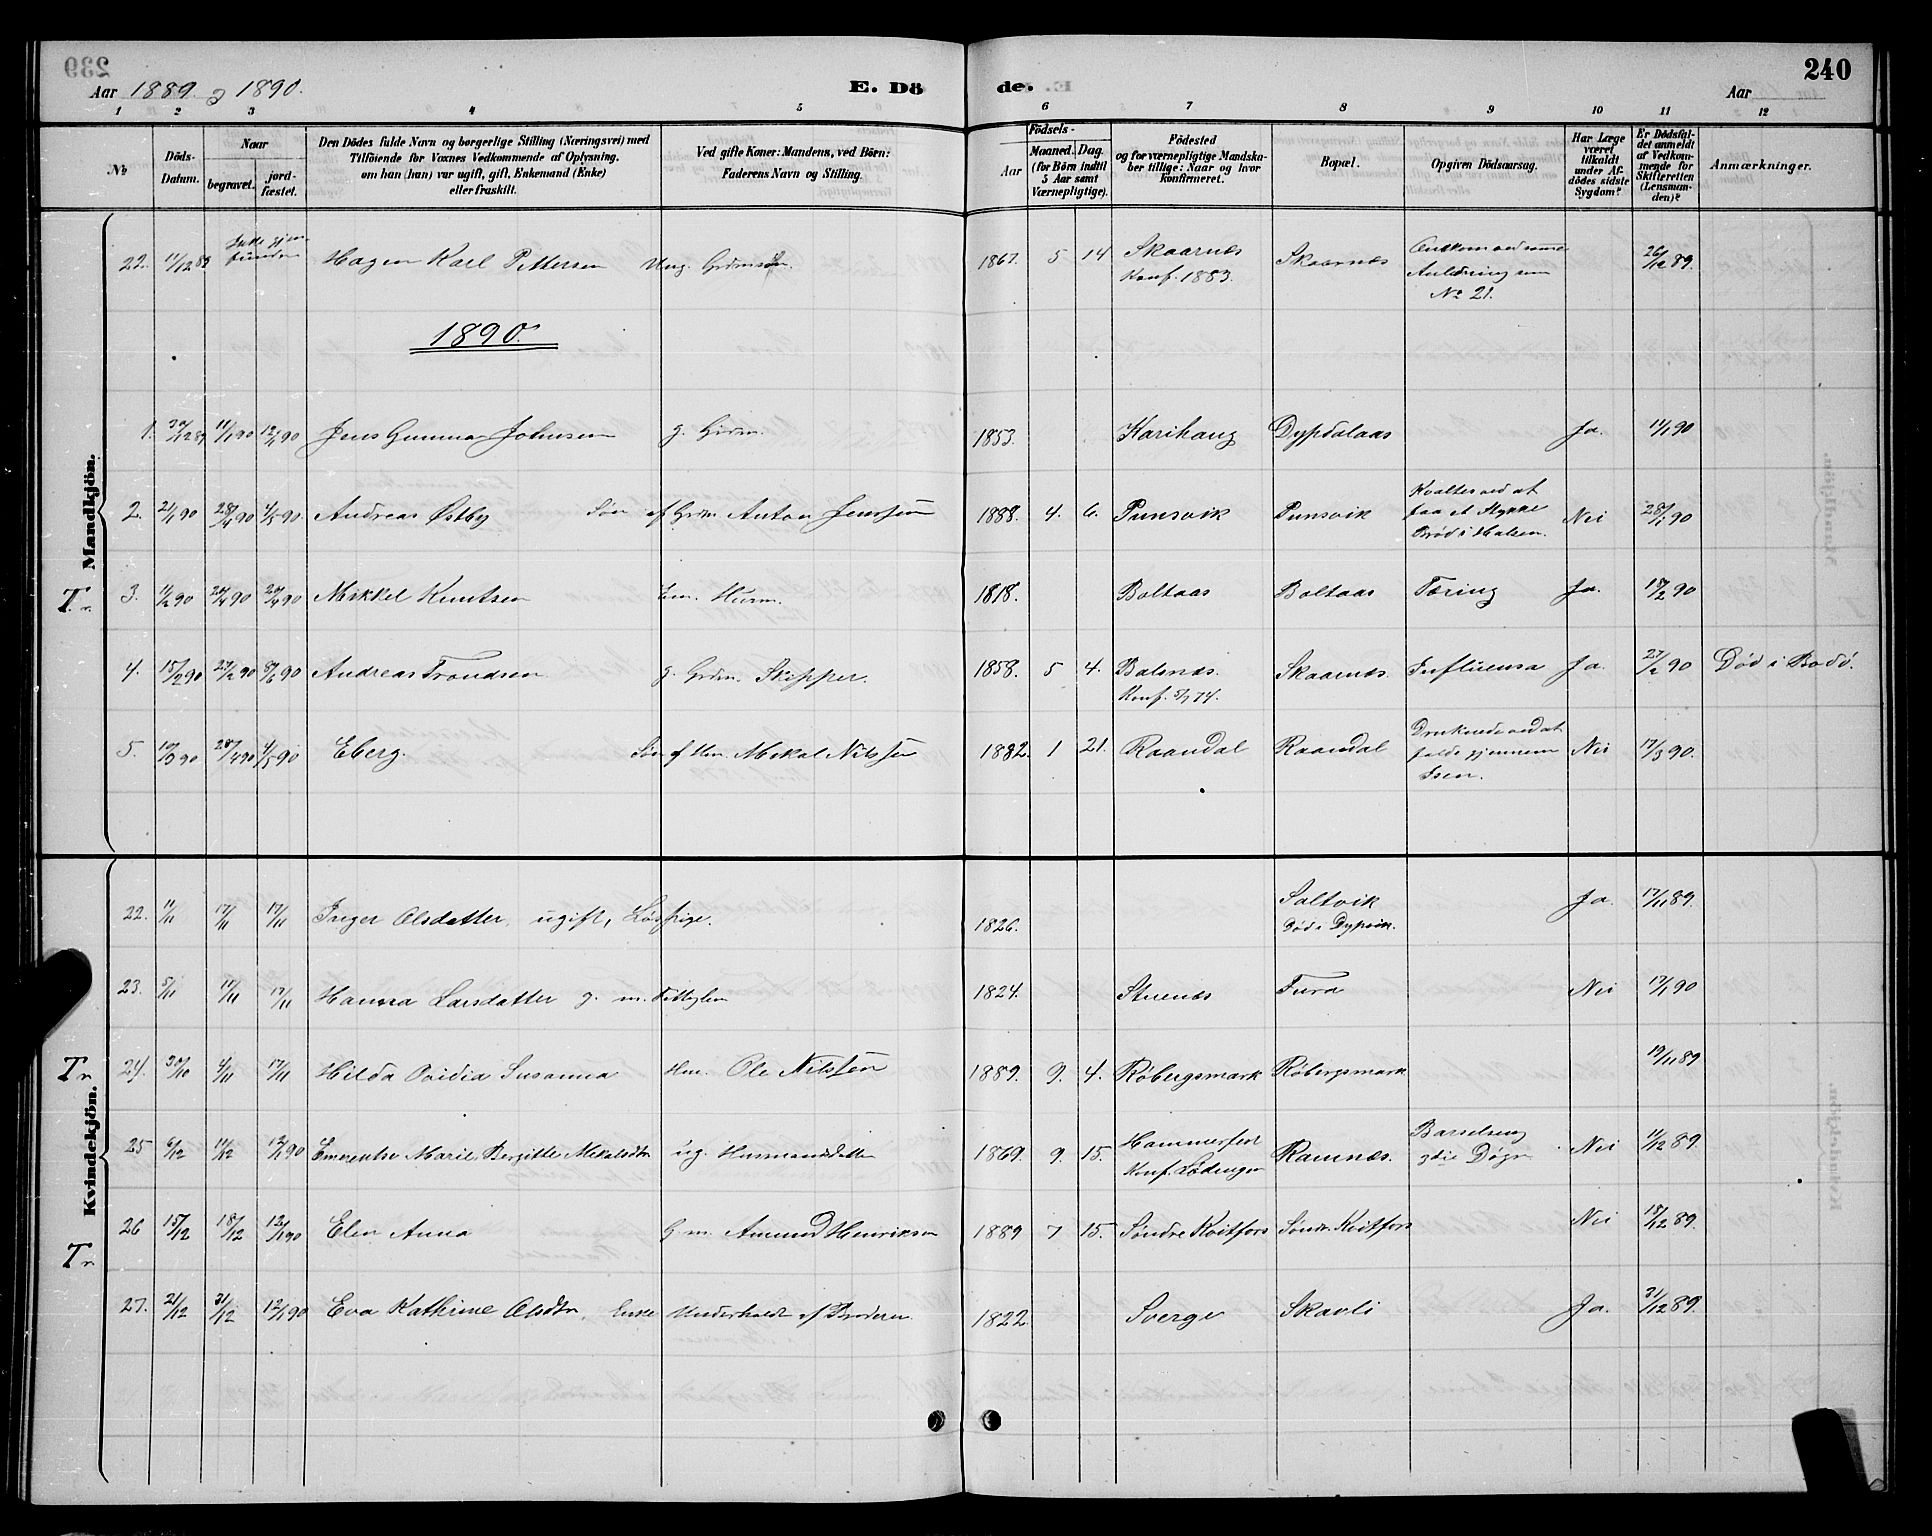 239
240
Aar 1889 & 1890.
E. Dö
de.
Aar
1 2 3 4 5 6 7 8 9 10 11 12
No
Döds-Datum.
Naar
begravet.
jordfæstet.
Den Dödes fulde Navn og borgerlige Stilling (Næringsvei) med
Tilföiende for Voxnes Vedkommende af Oplysning,
om han (hun) var ugift, gift, Enkemand (Enke)
eller fraskilt.
Ved gifte Koner: Mandens, ved Börn:
Faderens Navn og Stilling.
Födsels-
Aar
Maaned. Dag.
(for Börn indtil
5 Aar samt
Værnepligtige).
Födested
og for værnepligtige Mandska-
ber tillige: Naar og hvor
konfirmeret.
Bopæl.
Opgiven Dödsaarsag.
Har Læge
været
tilkaldt
under Af-
dödes sidste
Sygdom?
Er Dödsfal-
det anmeldt
af Vedkom-
mende for
Skifteretten
(Lensman-
den)?
Anmærkninger.
Mandkjön.
22. 11/12 89 Ikke gjen-
funden Hagen Karl Pettersen Ung. Grdmsøn. 1867. 5 14 Skaarnes
Konf. 1883. Skaarnes Omkom ved samme
Anledning som
No 21. 26/12 89.
1890.
1. 30/12 89 11/1 90 12/1 90 Jens Gunnar Johnsen g. Grdm. 1853. Karihaug Dypdalaas Ja. 11/1 90
2. 21/1 90 28/4 90 4/5 90 Andreas Østby Søn af Grdm. Anton Jenssen 1888. 4. 6. Punsvik Punsvik Kvaltes ved at
faa et Stykke
Brød i Halsen. Nei 28/1 90
T. 3. 11/2 90 20/4 90 20/4 90 Mikkel Knutsen Em. Husm. 1818. Boltaas Boltaas Tæring Ja. 18/2 90
4. 15/2 90 27/2 90 8/6 90 Andreas Trondsen g. Grdm. Skipper. 1858. 5 4. Balsnes.
Konf. 5/7 74. Skaarnes. Influensa Ja. 27/2 90 Død i Bodø.
5. 10/3 90 28/4 90 4/5 90 Eberg. Søn af Hm. Mikal Nilssen 1882. 1 21. Raandal Raandal Druknede ved at
falde gjennem
Isen. Nei 17/3 90.
Kvindekjön.
22. 11/11 17/11 17/11 Inger Olsdatter, ugift, Løspige. 1826. Saltvik
Død i Dypvik. Ja. 17/11 89.
23. 5/11 17/11 17/11 Hanna Larsdatter g. m. 1824. Stunes Fura Nei 17/1 90
Tr 24. 30/10 4/11 17/11 Hilda Ovidia Susanna Hm. Ole Nilssen 1889. 9. 4. Røbergsmark Røbergsmark 19/11 89
25 6/12 11/12 12/1 90 Emerentse Marie Bergitte Mikalsdtr ug. Husmandsdatter 1869. 9. 15. Hammerfest
Konf. Lødingen Ramnes. Barselseng
3die Døgn. Nei 11/12 89.
Tr 26 15/12 18/12 12/1 90 Elen Anna G. m. Amund Henriksen 1889 7 15. Søndre Kvitfors Søndr. Kvitfors Nei 18/12 89.
27. 21/12 31/12 12/1 90 Eva Kathrine Olsdtr, Enke Underholdt af Broderen 1822. Sverge Skavli Ja. 31/12 89.